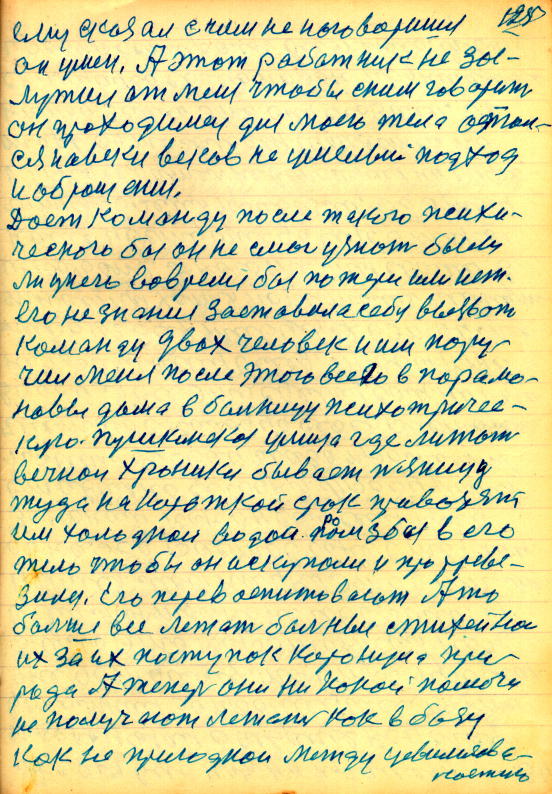 125
ему сказал с ним не поговоришь
он умен. А этот работник не зас-
лужил от меня чтобы с ним говорить
он проходимец для моего тела остал-
ся навеки веков не умелый подход
и оброщении.
Дает команду после такого психи-
ческого был он не смог узнат были
ли у него вовремя бы потери или нет.
Его не знания заставила себя вызват
команду двох человек и им пору-
чил меня после этого всего в парамо-
новы дома в болницу психотричес-
кую. пушкинская улица где лижат
вечнои хроники бывает пяниц
туда на короткой срок привозят
им холодной водой бы в его
тело чтобы он искупали и протреве-
зили. Его перевоспитовают А то
болше все лежат болные стихейно
их за их поступок короница при-
рода А теперь они ни какой помочи
не получают лежат как в базу
как не пригодной между цевилизова-
ностию